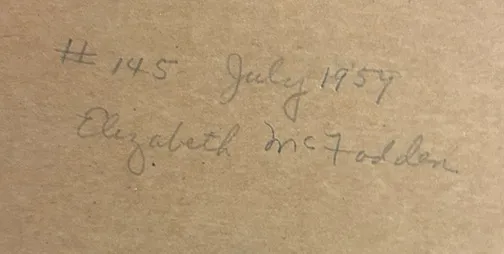 # 145 July 1959
Elizabeth McFadden